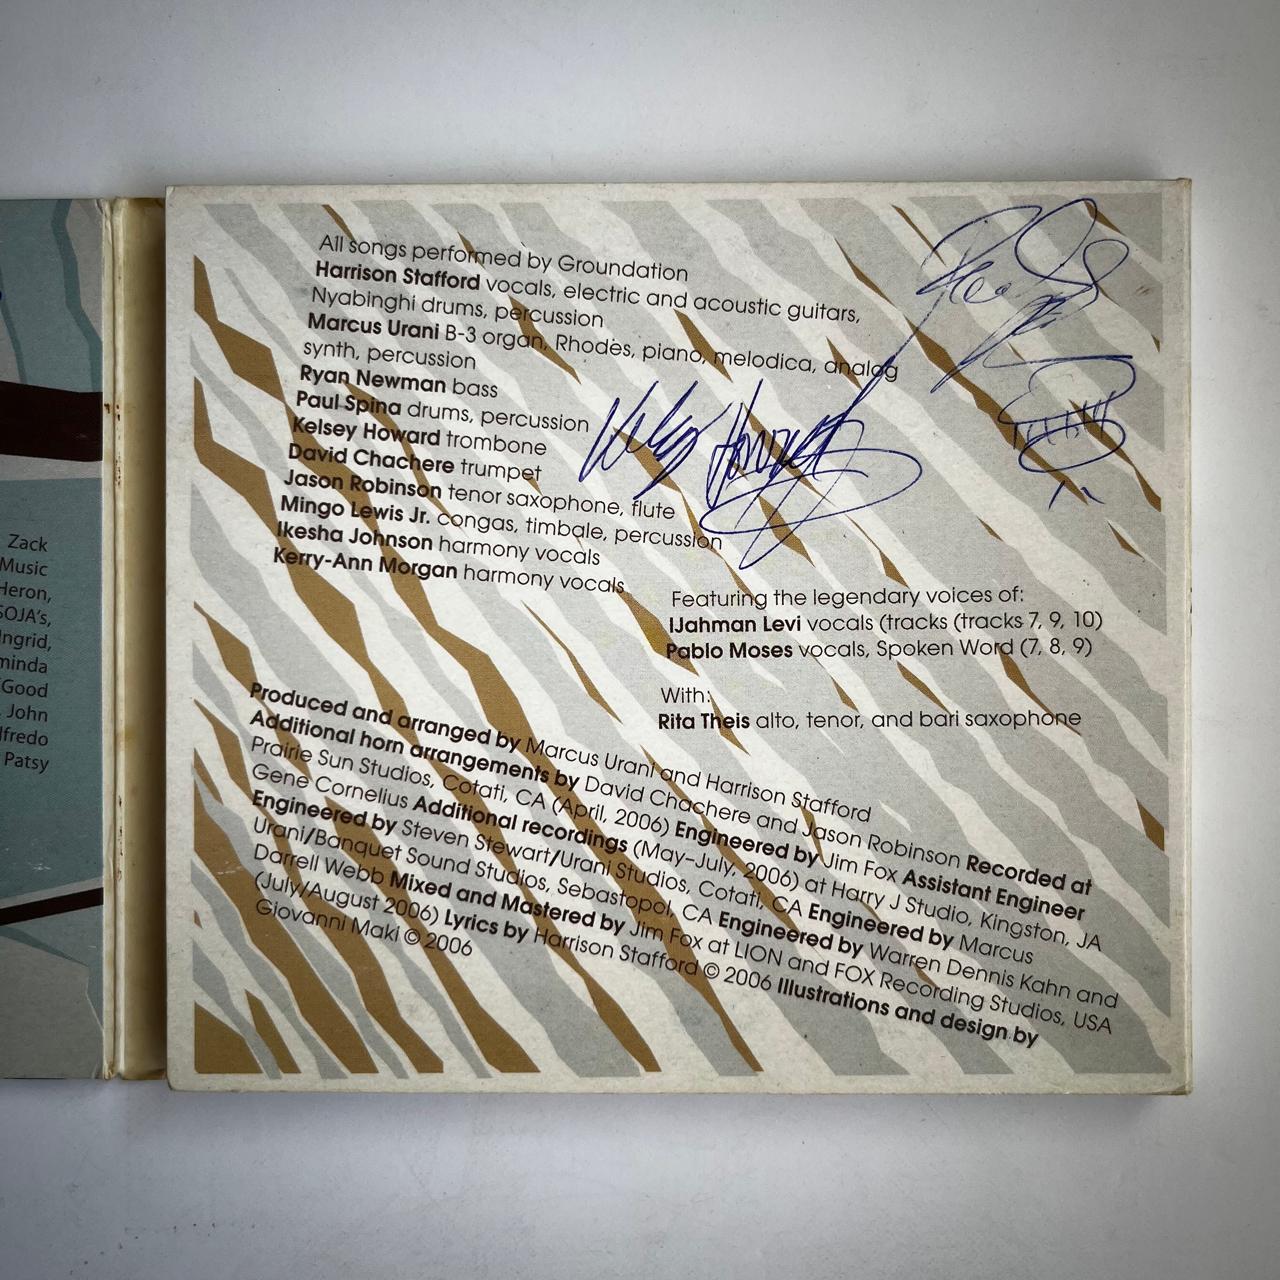 Zack
Music
Heron,
SOJA's,
Ingrid,
minda
Good
John
lfredo
Patsy
All songs performed by Groundation
Harrison Stafford vocals, electric and acoustic guitars,
Nyabinghi drums, percussion
Marcus Urani B-3 organ, Rhodes, piano, melodica, analog
synth, percussion
Ryan Newman bass
Paul Spina drums, percussion
Kelsey Howard trombone
David Chachere trumpet
Jason Robinson tenor saxophone, flute
Mingo Lewis Jr. congas, timbale, percussion
Ikesha Johnson harmony vocals
Kerry-Ann Morgan harmony vocals
Kelsey Howard
Featuring the legendary voices of:
IJahman Levi vocals (tracks (tracks 7, 9, 10)
Pablo Moses vocals, Spoken Word (7, 8, 9)
With:
Rita Theis alto, tenor, and bari saxophone
Produced and arranged by Marcus Urani and Harrison Stafford
Additional horn arrangements by David Chachere and Jason Robinson Recorded at
Prairie Sun Studios, Cotati, CA (April, 2006) Engineered by Jim Fox Assistant Engineer
Gene Cornelius Additional recordings (May–July, 2006) at Harry J Studio, Kingston, JA
Engineered by Steven Stewart/Urani Studios, Cotati, CA Engineered by Marcus
Urani/Banquet Sound Studios, Sebastopol, CA Engineered by Warren Dennis Kahn and
Darrell Webb Mixed and Mastered by Jim Fox at LION and FOX Recording Studios, USA
(July/August 2006) Lyrics by Harrison Stafford © 2006 Illustrations and design by
Giovanni Maki © 2006